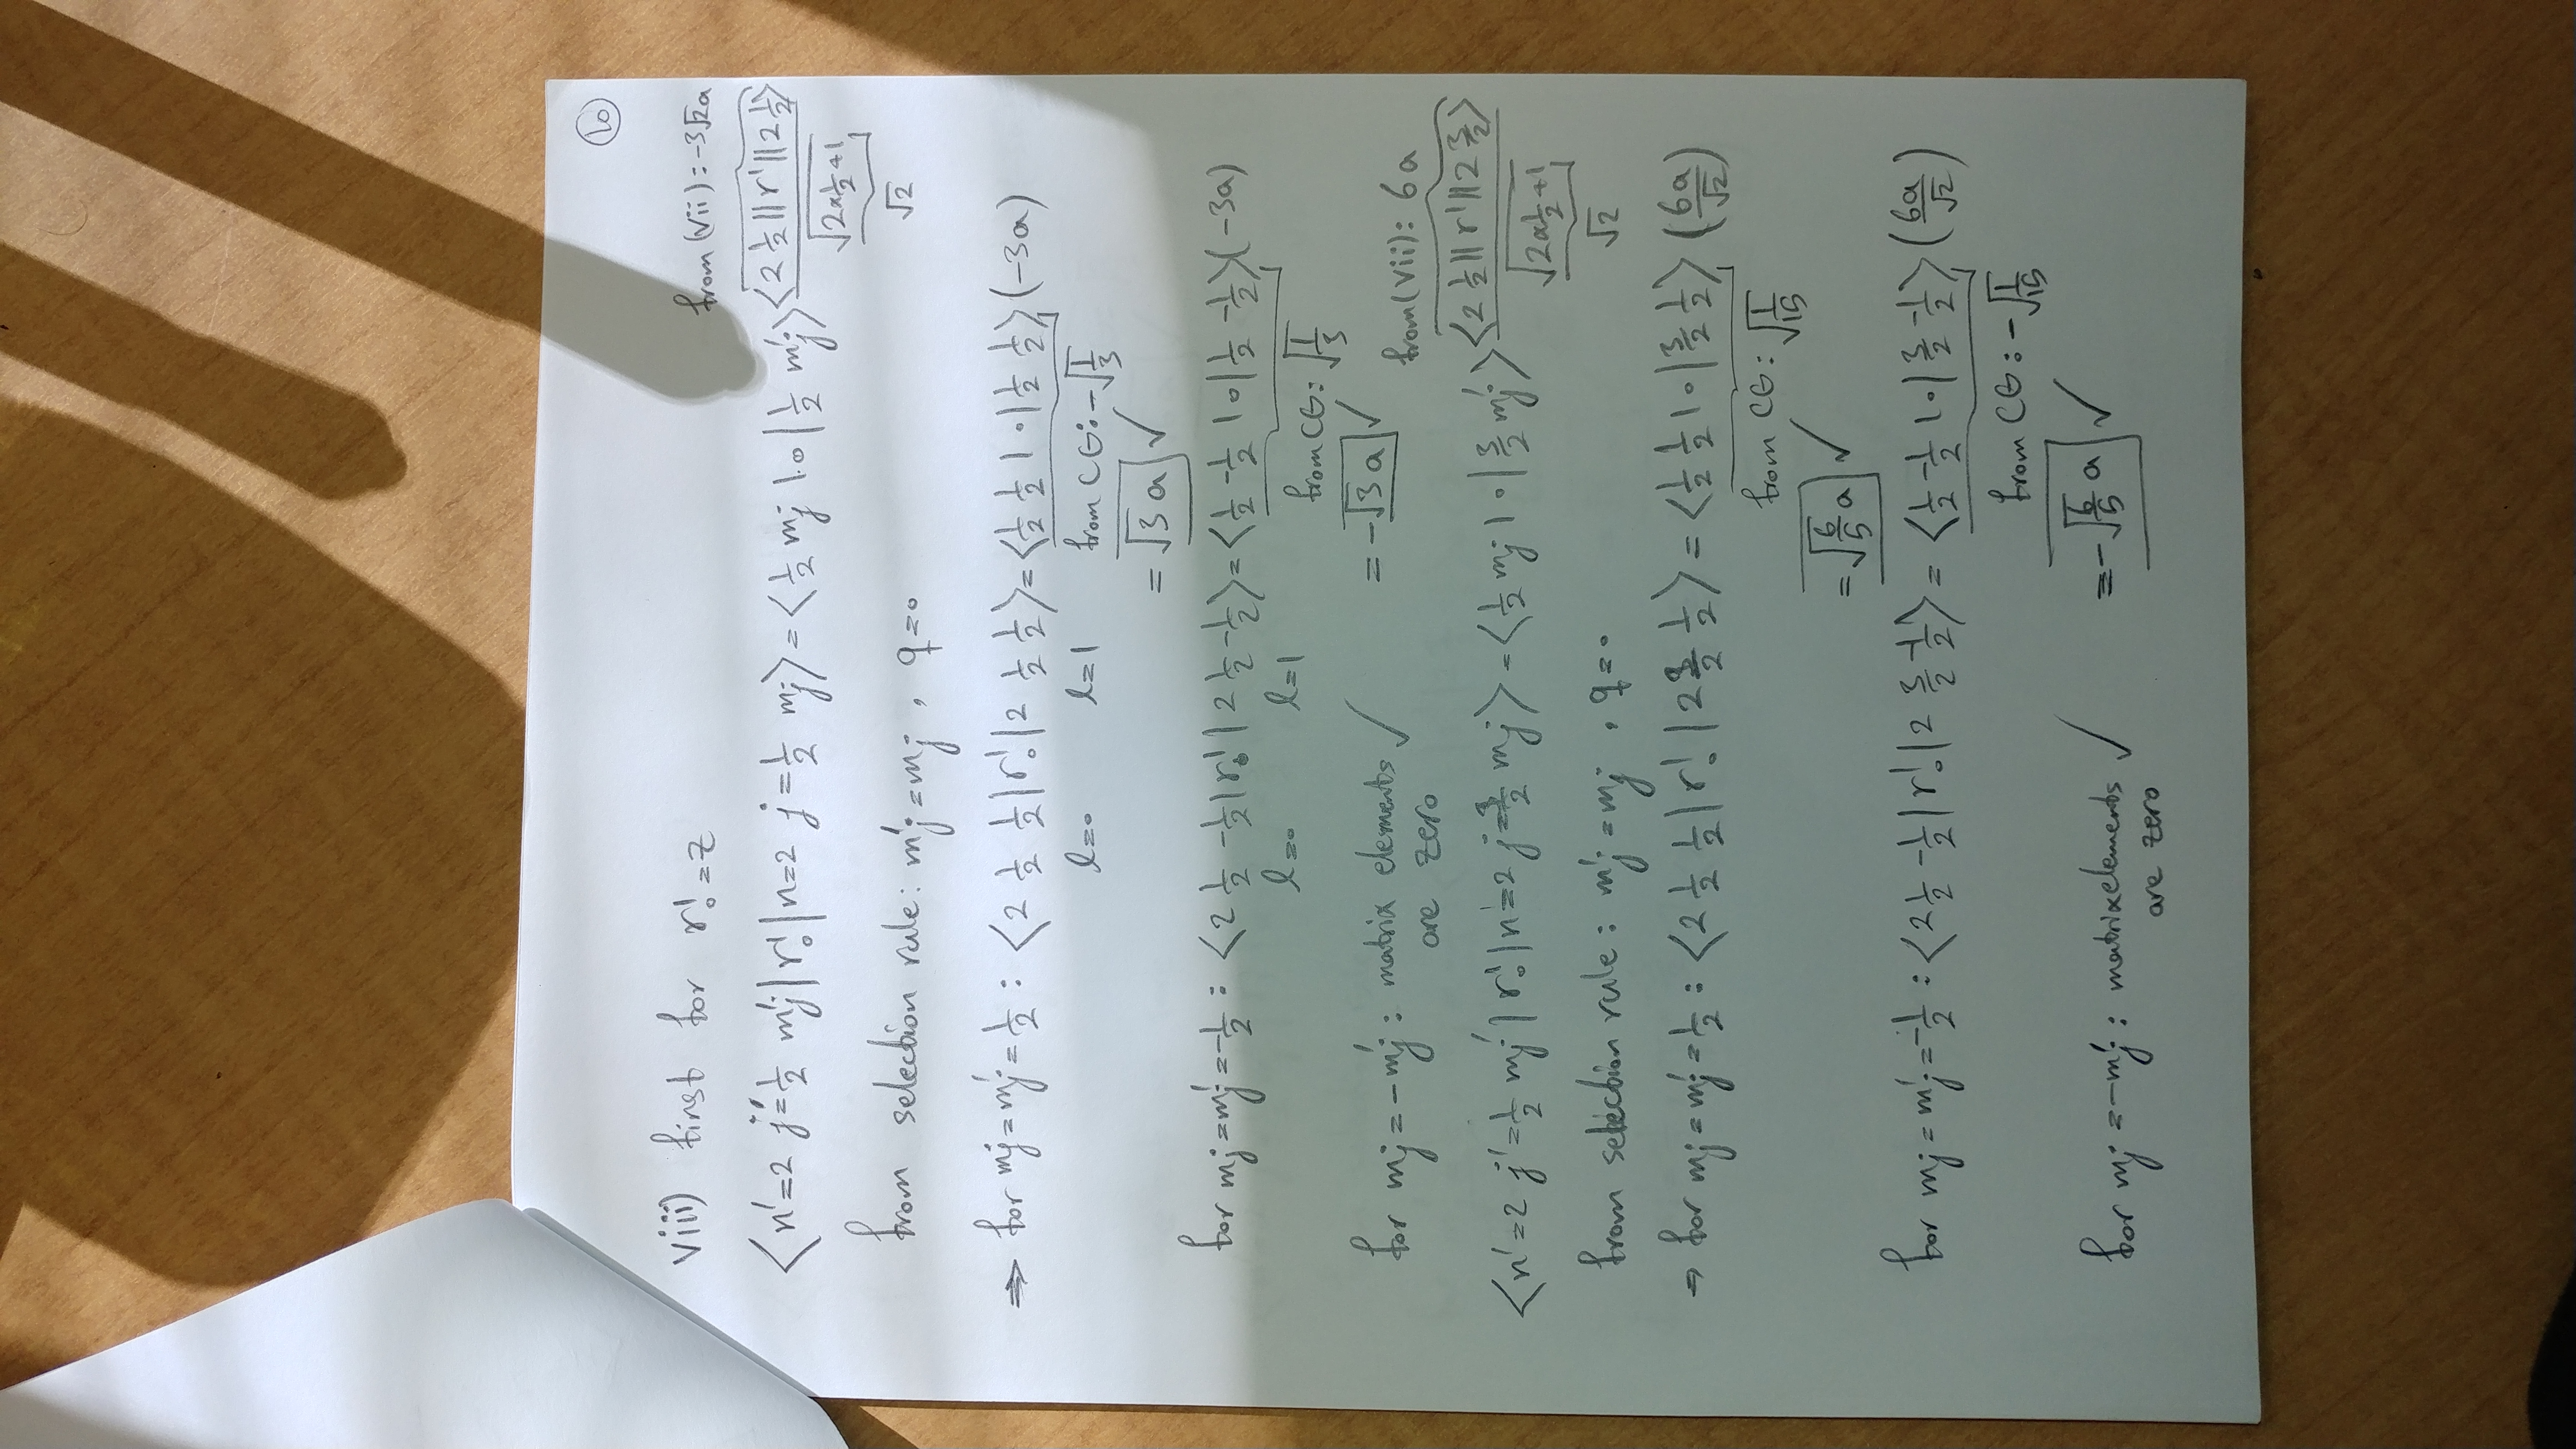 10
viii) first for r¹₀ = z
from (vii): -3√2a
⟨n'=2 j'=1/2 m'j | r¹₀ | n=2 j=1/2 mj⟩ = ⟨1/2 mj 1 0 | 1/2 m'j⟩ ⟨2 1/2 || r¹ || 2 1/2⟩ / √(2×1/2+1)
√2
from selection rule: m'j = mj , q=0
⇒ for mj = m'j = 1/2 : ⟨2 1/2 1/2 | r¹₀ | 2 1/2 1/2⟩ = ⟨1/2 1/2 1 0 | 1/2 1/2⟩ (-3a)
l=0 l=1 from CG: -√(1/3)
= √3 a ✓
for mj = m'j = -1/2 : ⟨2 1/2 -1/2 | r¹₀ | 2 1/2 -1/2⟩ = ⟨1/2 -1/2 1 0 | 1/2 -1/2⟩ (-3a)
l=0 l=1 from CG: √(1/3)
= -√3 a ✓
for mj = -m'j : matrix elements ✓
are zero
from (vii): 6a
⟨n'=2 j'=1/2 m'j | r¹₀ | n'=2 j=3/2 mj⟩ = ⟨1/2 mj 1 0 | 3/2 m'j⟩ ⟨2 1/2 || r¹ || 2 3/2⟩ / √(2×1/2+1)
√2
from selection rule: m'j = mj , q=0
⇒ for mj = m'j = 1/2 : ⟨2 1/2 1/2 | r¹₀ | 2 3/2 1/2⟩ = ⟨1/2 1/2 1 0 | 3/2 1/2⟩ (6a/√2)
from CG: √(1/15)
= √(6/5) a ✓
for mj = m'j = -1/2 : ⟨2 1/2 -1/2 | r¹₀ | 2 3/2 -1/2⟩ = ⟨1/2 -1/2 1 0 | 3/2 -1/2⟩ (6a/√2)
from CG: -√(1/15)
= -√(6/5) a ✓
for mj = -m'j : matrix elements ✓
are zero